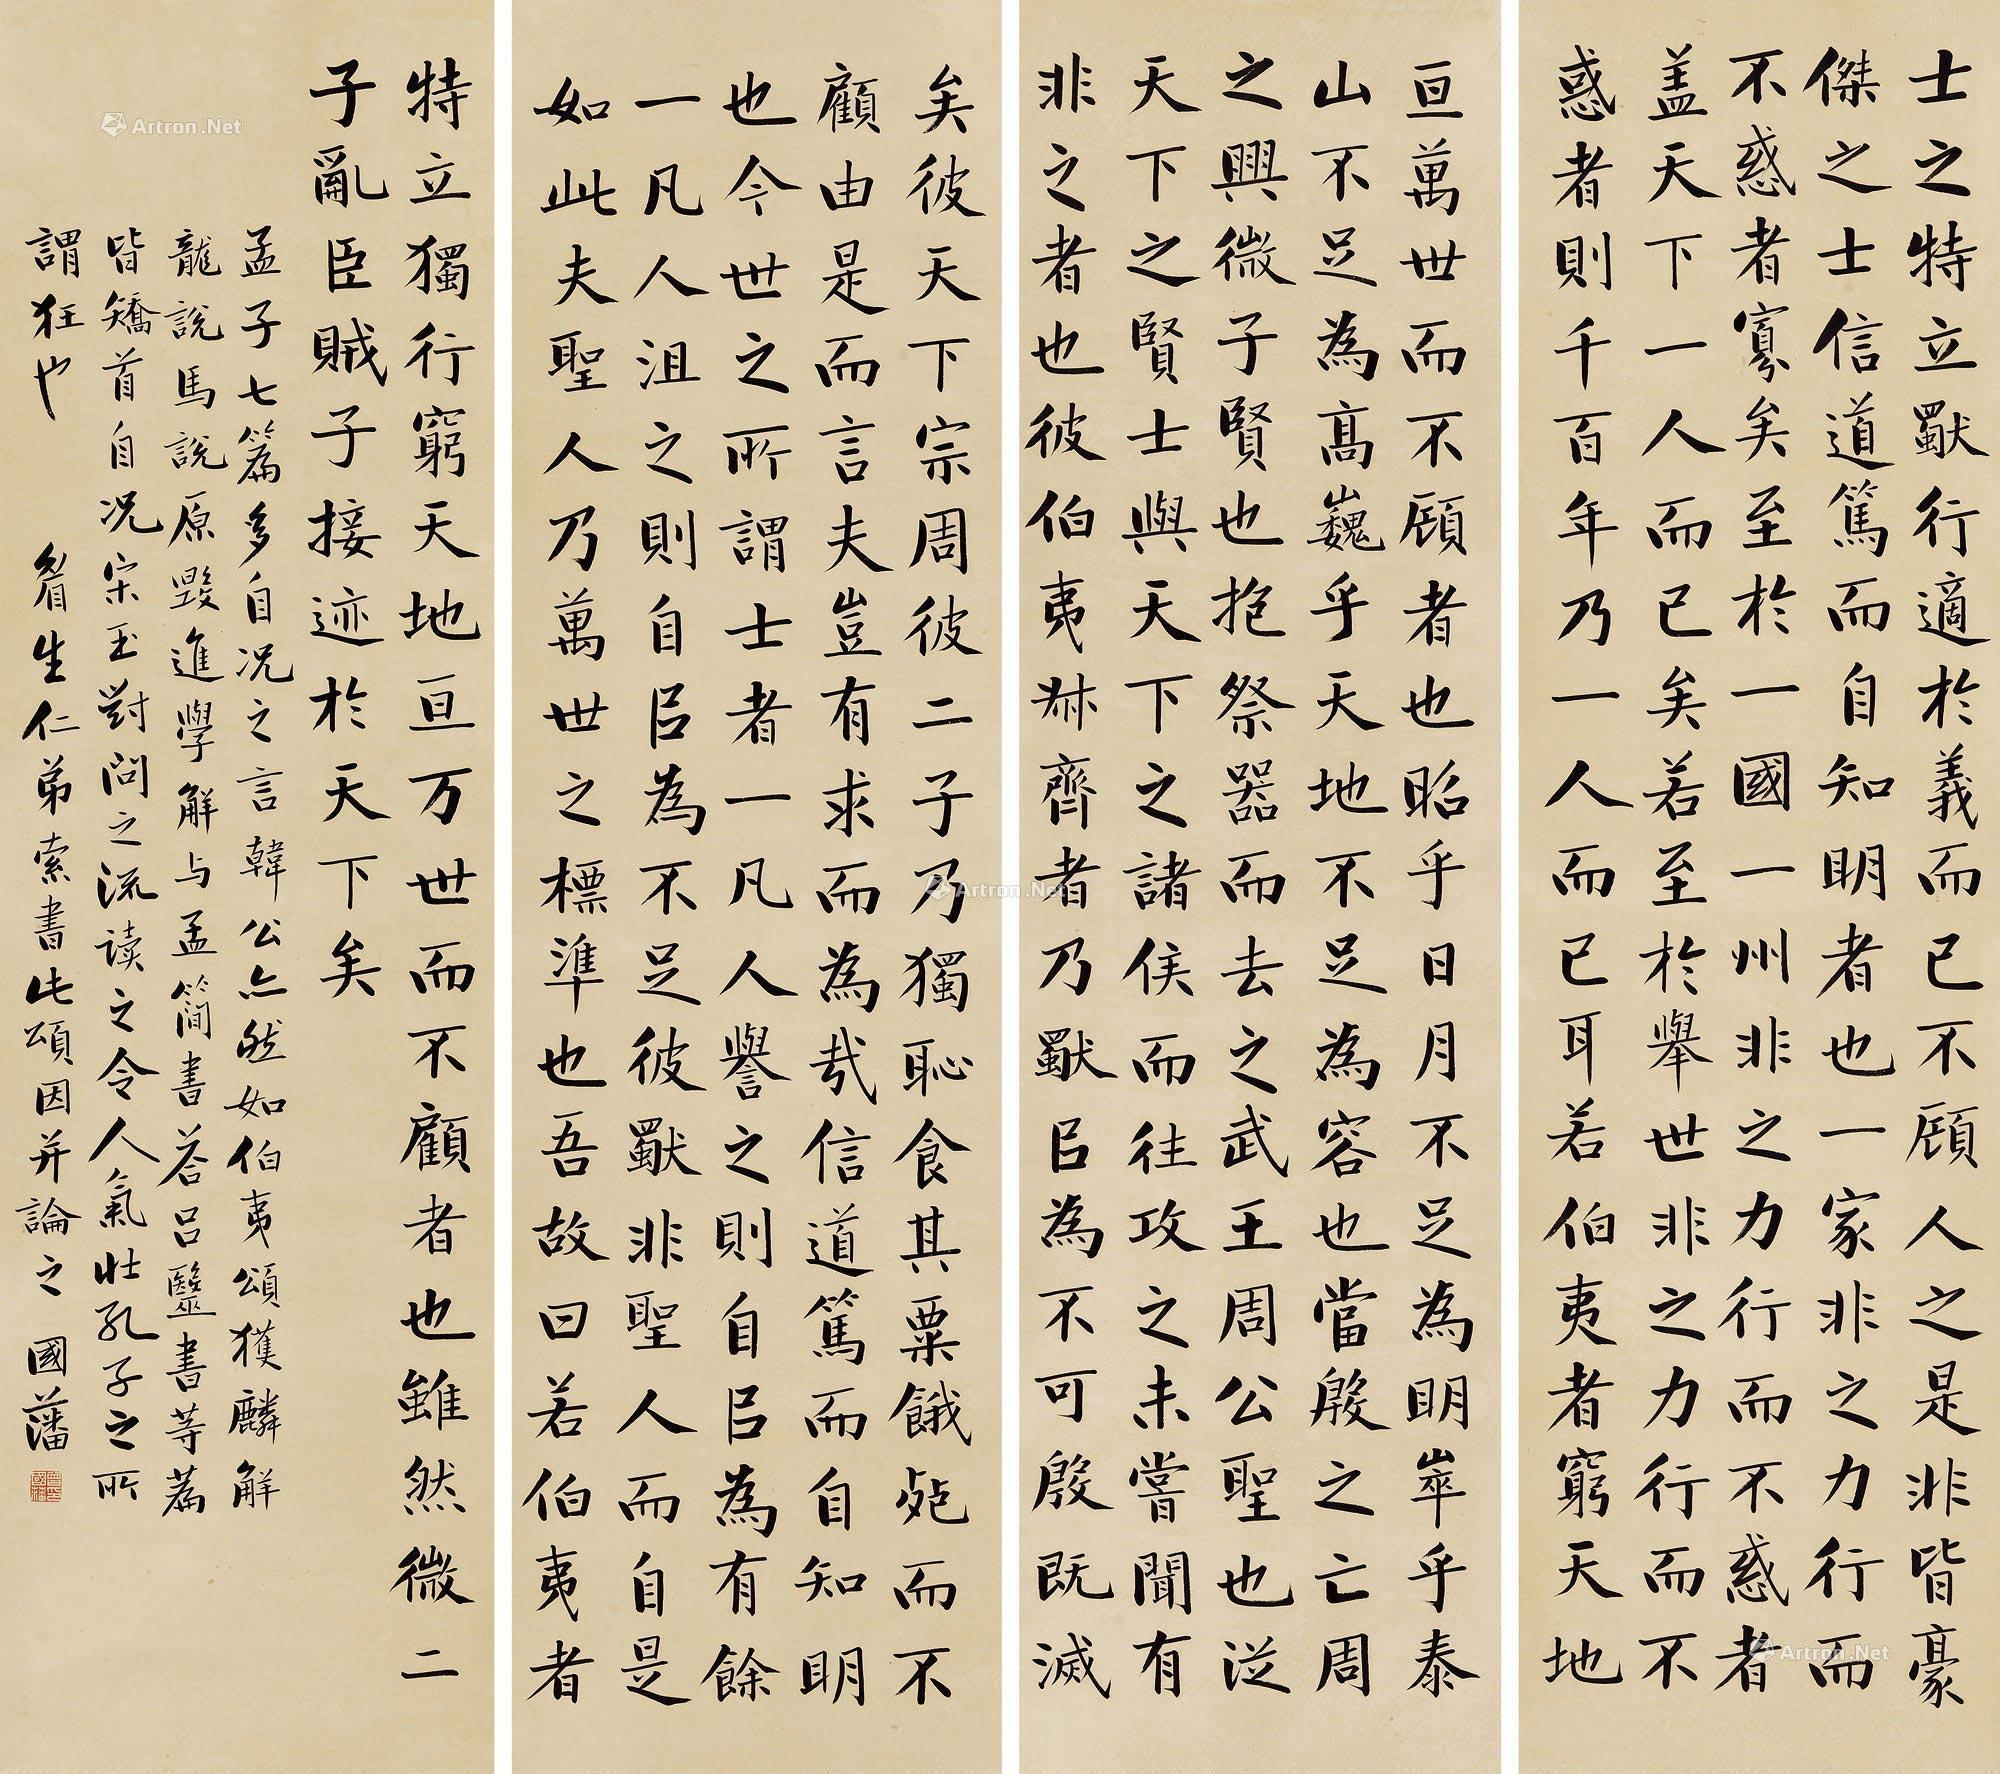 士之特立獨行適於義而已不顧人之是非皆豪
傑之士信道篤而自知明者也一家非之力行而
不惑者寡矣至於一國一州非之力行而不惑者
盖天下一人而已矣若至於舉世非之力行而不
惑者則千百年乃一人而已耳若伯夷者窮天地
亘萬世而不顧者也昭乎日月不足為明崒乎泰
山不足為髙巍乎天地不足為容也當殷之亡周
之興微子賢也抱祭器而去之武王周公聖也從
天下之賢士與天下之諸侯而往攻之未嘗聞有
非之者也彼伯夷叔齊者乃獨㠯為不可殷既滅
矣彼天下宗周彼二子乃獨恥食其粟餓死而不
顧由是而言夫豈有求而為哉信道篤而自知明
也今世之所謂士者一凡人譽之則自㠯為有餘
一凡人沮之則自㠯為不足彼獨非聖人而自是
如此夫聖人乃萬世之標準也吾故曰若伯夷者
特立獨行窮天地亘万世而不顧者也雖然微二
子亂臣賊子接迹於天下矣
孟子七篇多自况之言韓公亦然如伯夷頌獲麟解
龍說馬說原毀進學解与孟簡書荅吕毉書等篇
皆矯首自况宋玉對問之流读之令人氣壮孔子之所
謂狂也
眉生仁弟索書此頌因并論之 國藩
Artron.Net
Artron.Net
Artron.Net